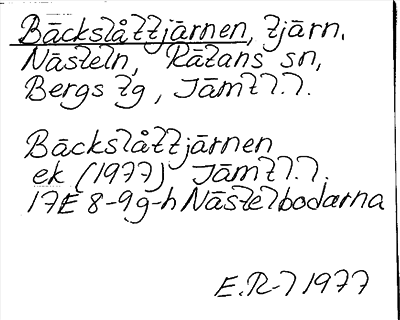 Bäckslåttjärnen, tjärn.
Nästeln, Rätans sn,
Bergs tg, Jämtl.l.
Bäckslåttjärnen
ek (1977) Jämtl.l.
17E 8-9g-h Nästelbodarna
E.R-l 1977